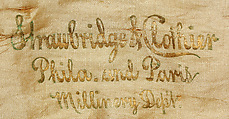 Strawbridge & Clothier
Phila. and Paris
Millinery Dept.